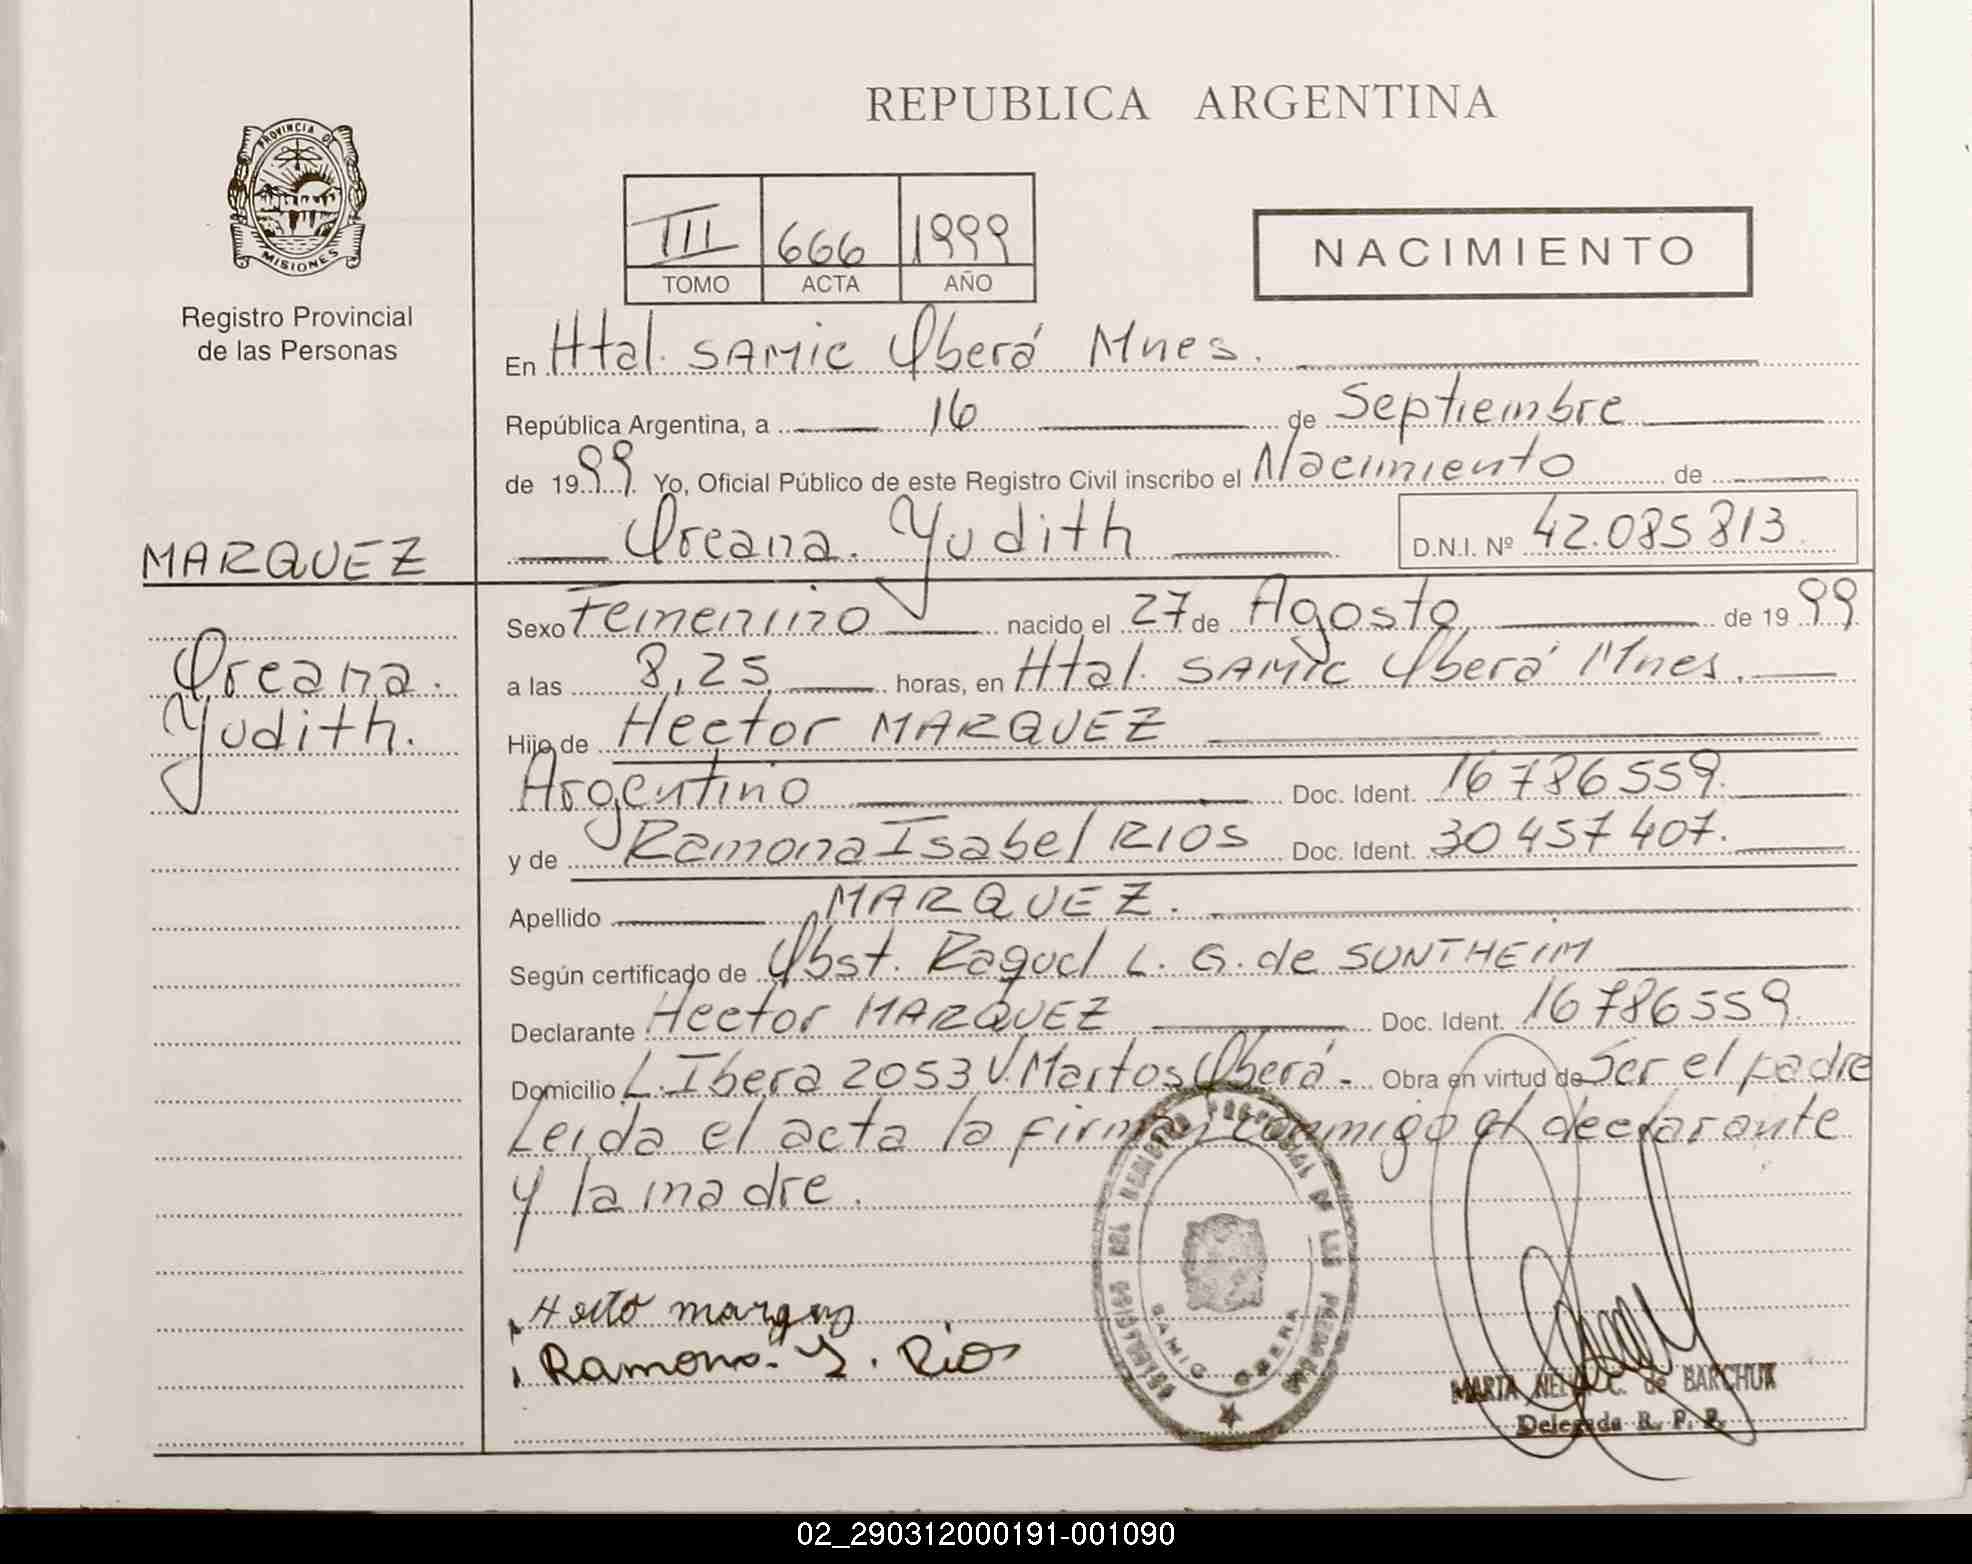 REPUBLICA ARGENTINA
PROVINCIA DE
MISIONES
Registro Provincial
de las Personas
III 666 1999
TOMO ACTA AÑO
NACIMIENTO
En Htal. SAMIC Oberá Mnes.
República Argentina, a 16 de Septiembre
de 1999. Yo, Oficial Público de este Registro Civil inscribo el Nacimiento de
Oreana. Yudith D.N.I. Nº 42.085813
MARQUEZ
Oreana.
Yudith.
Sexo Femenino nacido el 27 de Agosto de 1999
a las 8,25 horas, en Htal. SAMIC Oberá Mnes.
Hijo de Hector MARQUEZ
Argentino Doc. Ident. 16786559.
y de Ramona Isabel RIOS Doc. Ident. 30457407.
Apellido MARQUEZ.
Según certificado de Obst. Raquel L. G. de SUNTHEIM
Declarante Hector MARQUEZ Doc. Ident. 16786559.
Domicilio L. Ibera 2053 V. Martos Oberá - Obra en virtud de Ser el padre
Leida el acta la firman conmigo el declarante
y la madre.
marquez
Ramona. I. Rios
REGISTRO PROVINCIAL DE LAS PERSONAS
SAMIC OBERA
MARTA C. de BARCHUK
Delegada R. P. P.
02_290312000191-001090